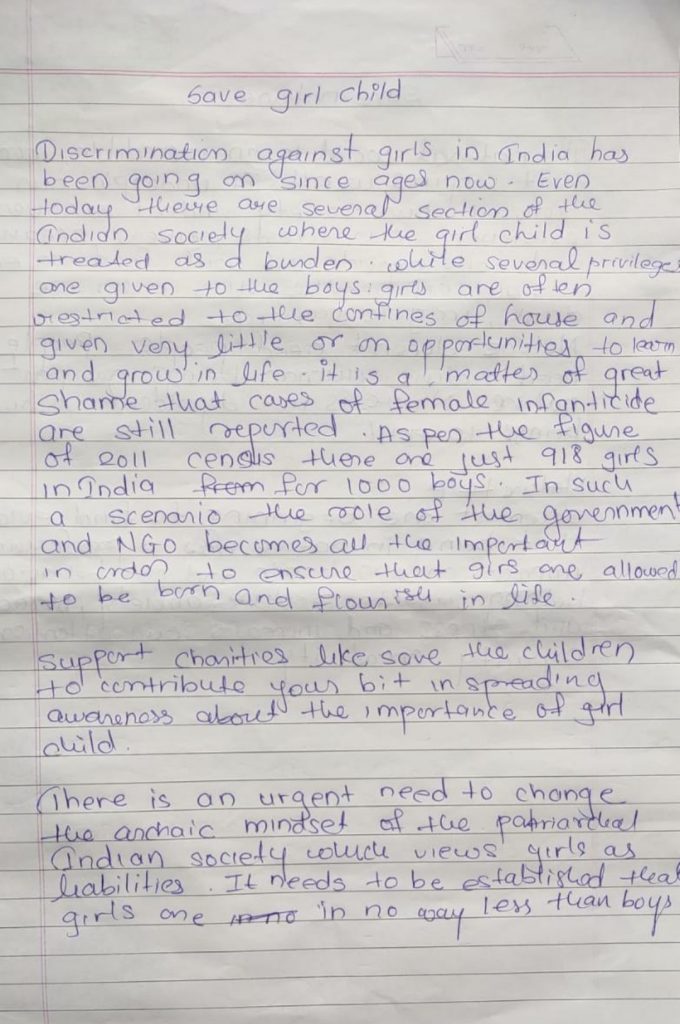 Save girl child
Discrimination against girls in India has
been going on since ages now. Even
today there are several section of the
Indian society where the girl child is
treated as a burden. while several privileges
are given to the boys: girls are often
restricted to the confines of house and
given very little or on opportunities to learn
and grow in life. it is a matter of great
shame that cases of female infanticide
are still reported. As per the figure
of 2011 census there are just 918 girls
in India from for 1000 boys. In such
a scenario the role of the government
and NGO becomes all the important
in order to ensure that girs are allowed
to be born and flourish in life.
support charities like save the children
to contribute your bit in spreading
awareness about the importance of girl
child.
There is an urgent need to change
the archaic mindset of the patriarchal
Indian society which views girls as
liabilities. It needs to be established that
girls are in no in no way less than boys